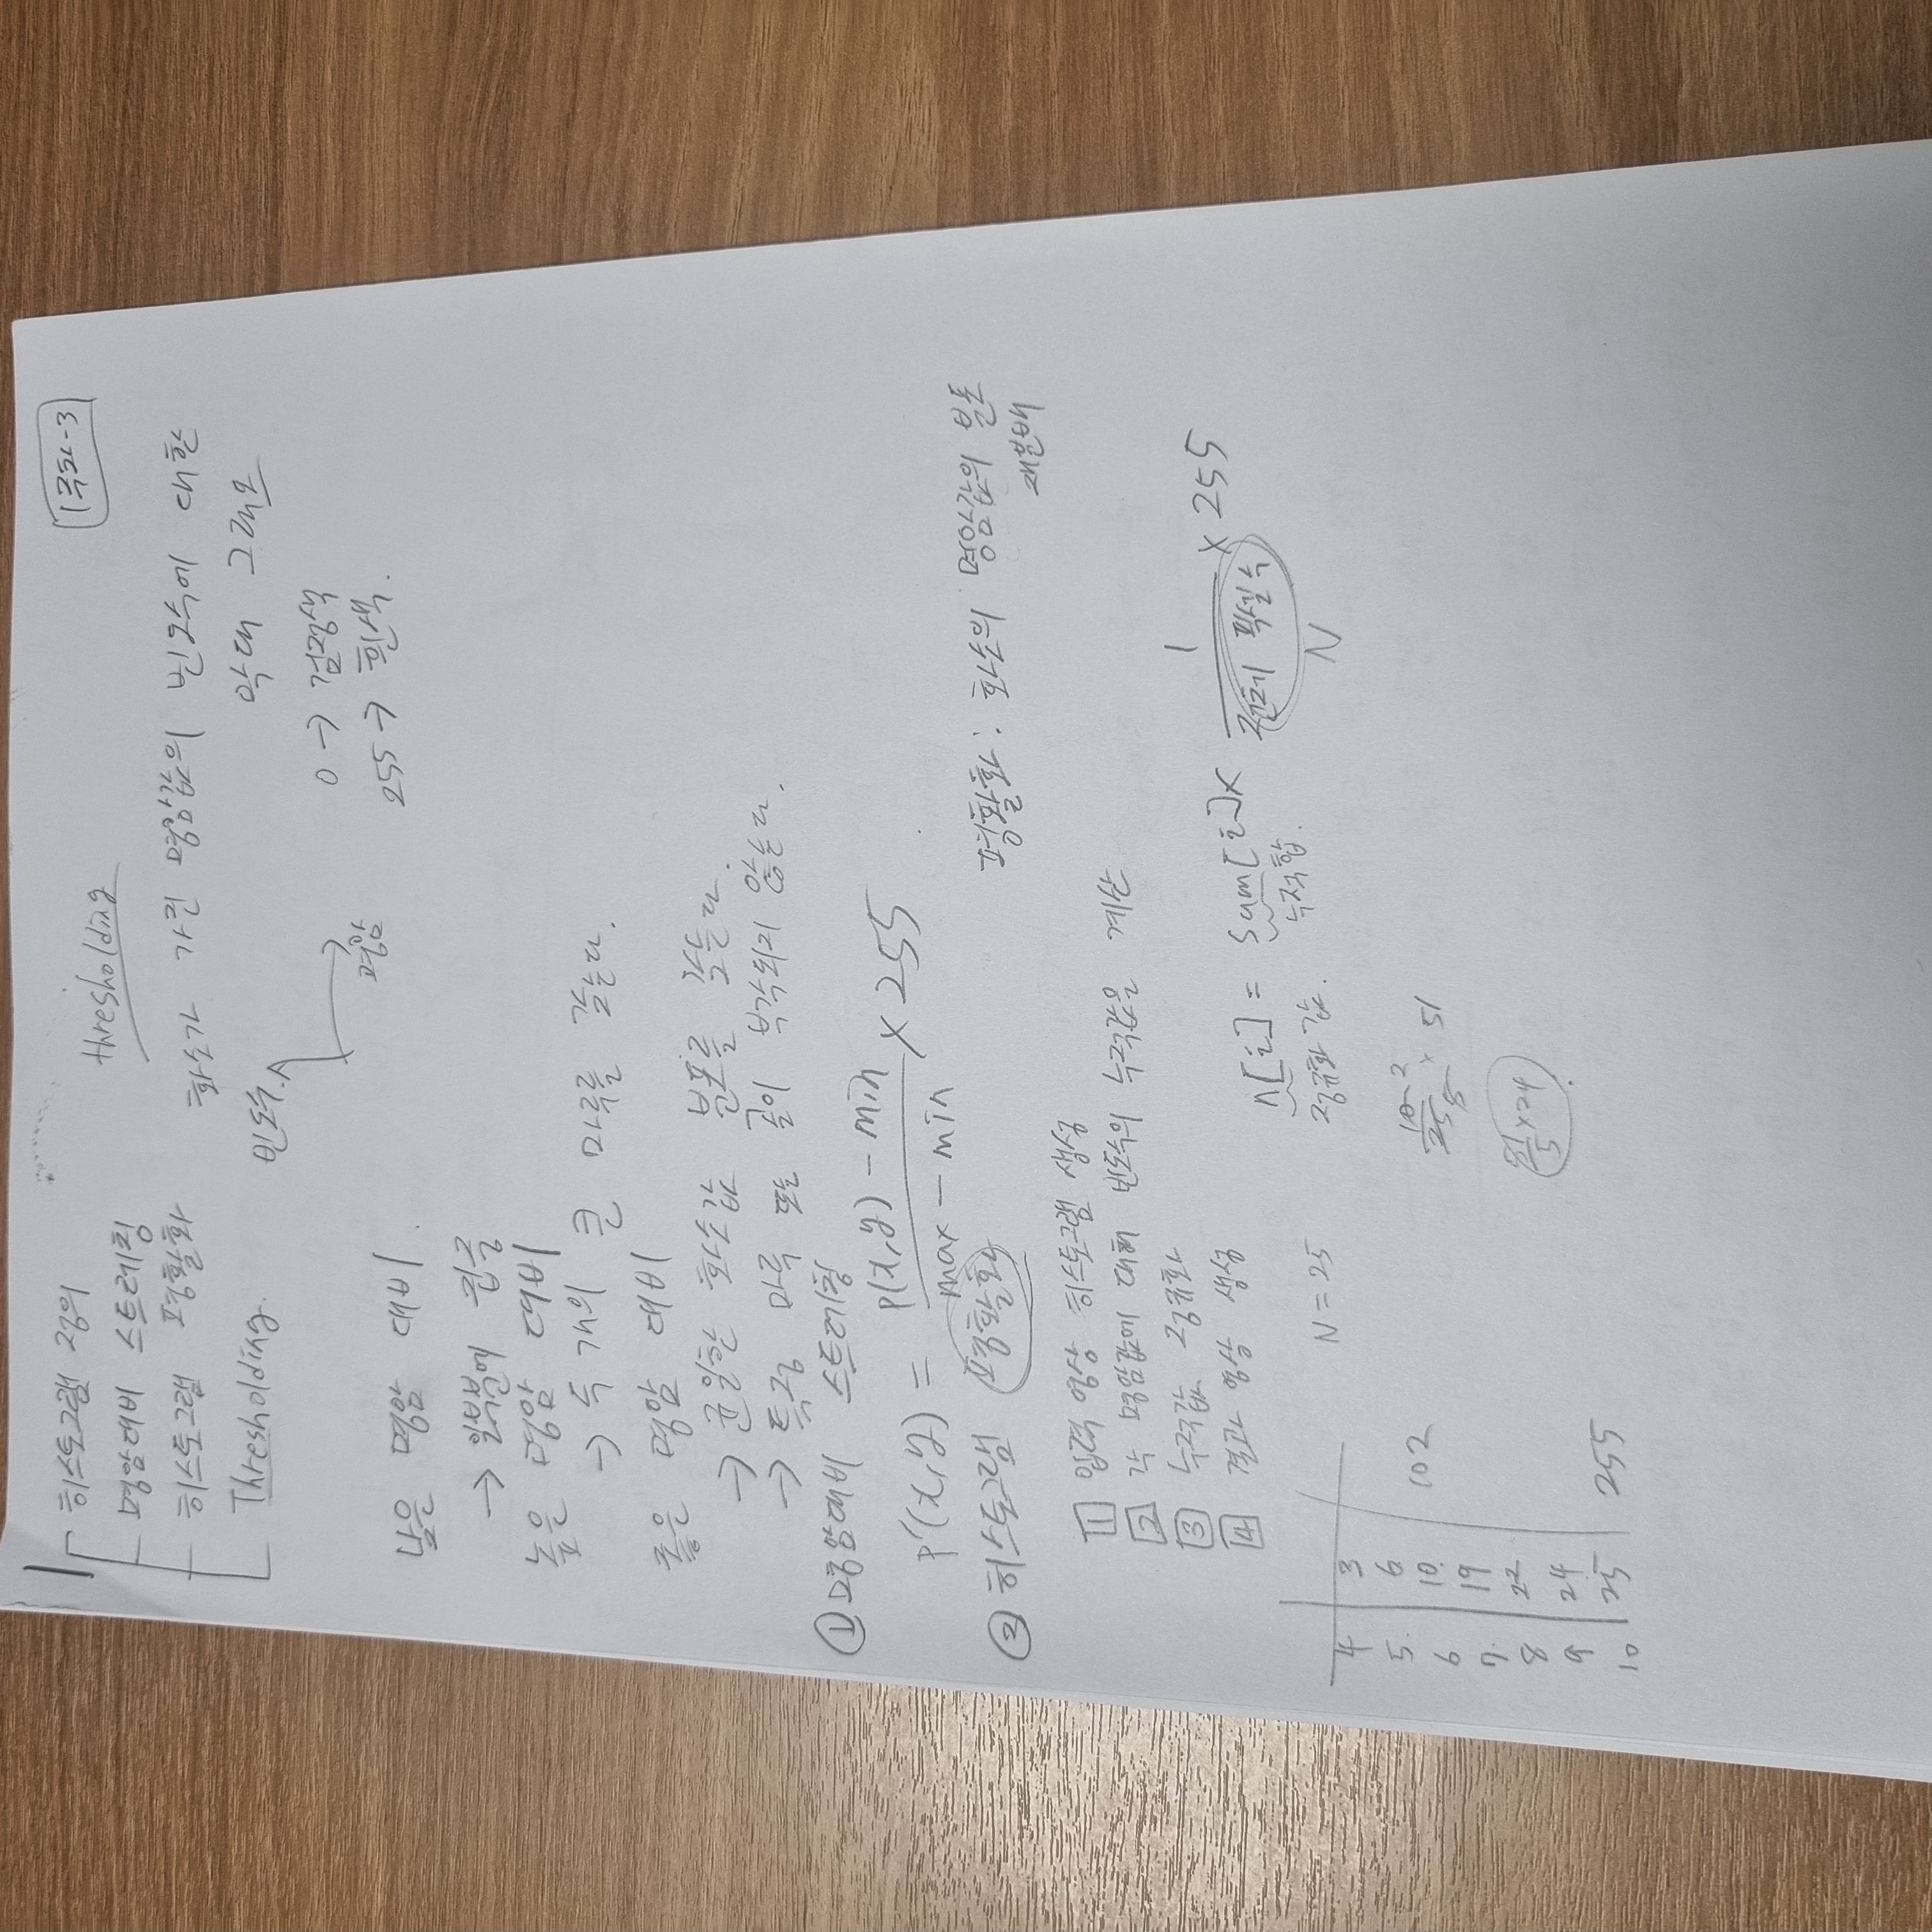 1주차-3
히스토그램 정의
명암대비 스트레칭
히스토그램 평활화
Thresholding.
thresholding
화소가 가진 명암값의 빈도수에 대한
막대 그래프
빈도수.
명암
0 → 검정색
255 → 흰색.
낮은 명암 대비.
→ 일부분에 집중
높은 명암 대비
→ 두 개의 큰 마루를 갖는다.
좋은 명암 대비
→ 균일한 화소값 분포를 갖는다.
→ 특정 마루 또는 골이 부각되지 않는다.
① 명암대비 스트레칭
p'(x,y) = p(x,y) - min / max - min × 255
② 히스토그램 평활화
평활화 : 화소의 명암값의 분포
재분배
1 입력 영상 히스토그램 생성
2 각 명암값에 대해 빈도수의 누적값을 계산
3 누적값 정규화
4 결과 영상 생성
n[i] = sum[i] × 1 / 전체 픽셀 수 × 255
정규화 값. 누적합. N
N = 25
4 3
5. 6
6 10. 102
7. 19
8 22
9 24
10 25 255
10 2 / 25 5 × 51
51/5 × 24